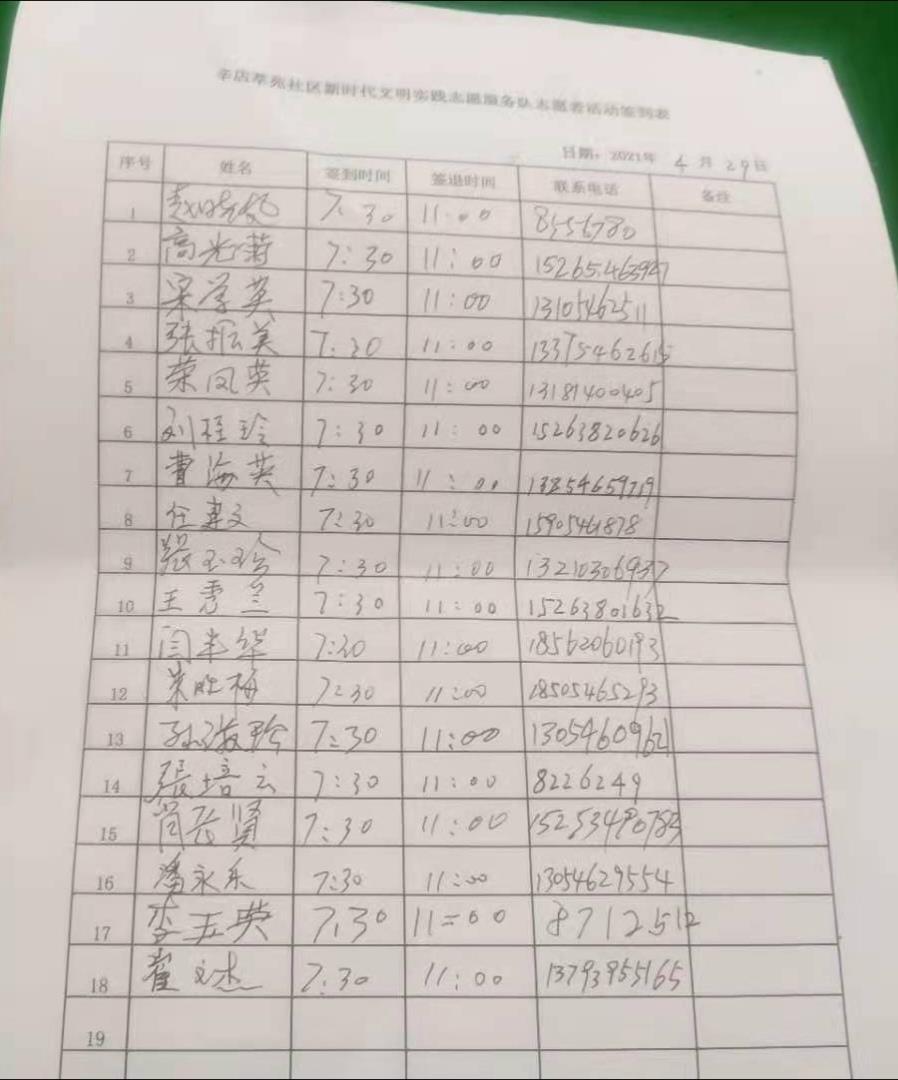 辛店萃苑社区新时代文明实践志愿服务队志愿者活动签到表
日期：2021年 4 月 29日
序号 姓名 签到时间 签退时间 联系电话 备注
1 7:30 11:00 8556780
2 高光蔚 7:30 11:00
3 宋学英 7:30 11:00 13105462511
4 张振美 7:30 11:00 13375462615
5 荣凤英 7:30 11:00 13181400405
6 刘桂玲 7:30 11:00 15263820626
7 曹海英 7:30 11:00
8 任惠文 7:30 11:00
9 张玉珍 7:30 11:00 13210306937
10 王秀兰 7:30 11:00 15263801632
11 闫丰华 7:30 11:00 18562060193
12 朱胜梅 7:30 11:00 18505465293
13 7:30 11:00 1305460962
14 張培云 7:30 11:00 8226249
15 7:30 11:00
16 潘永乐 7:30 11:00 13054629554
17 李玉英 7:30 11:00 8712512
18 崔文杰 7:30 11:00 13793955165
19